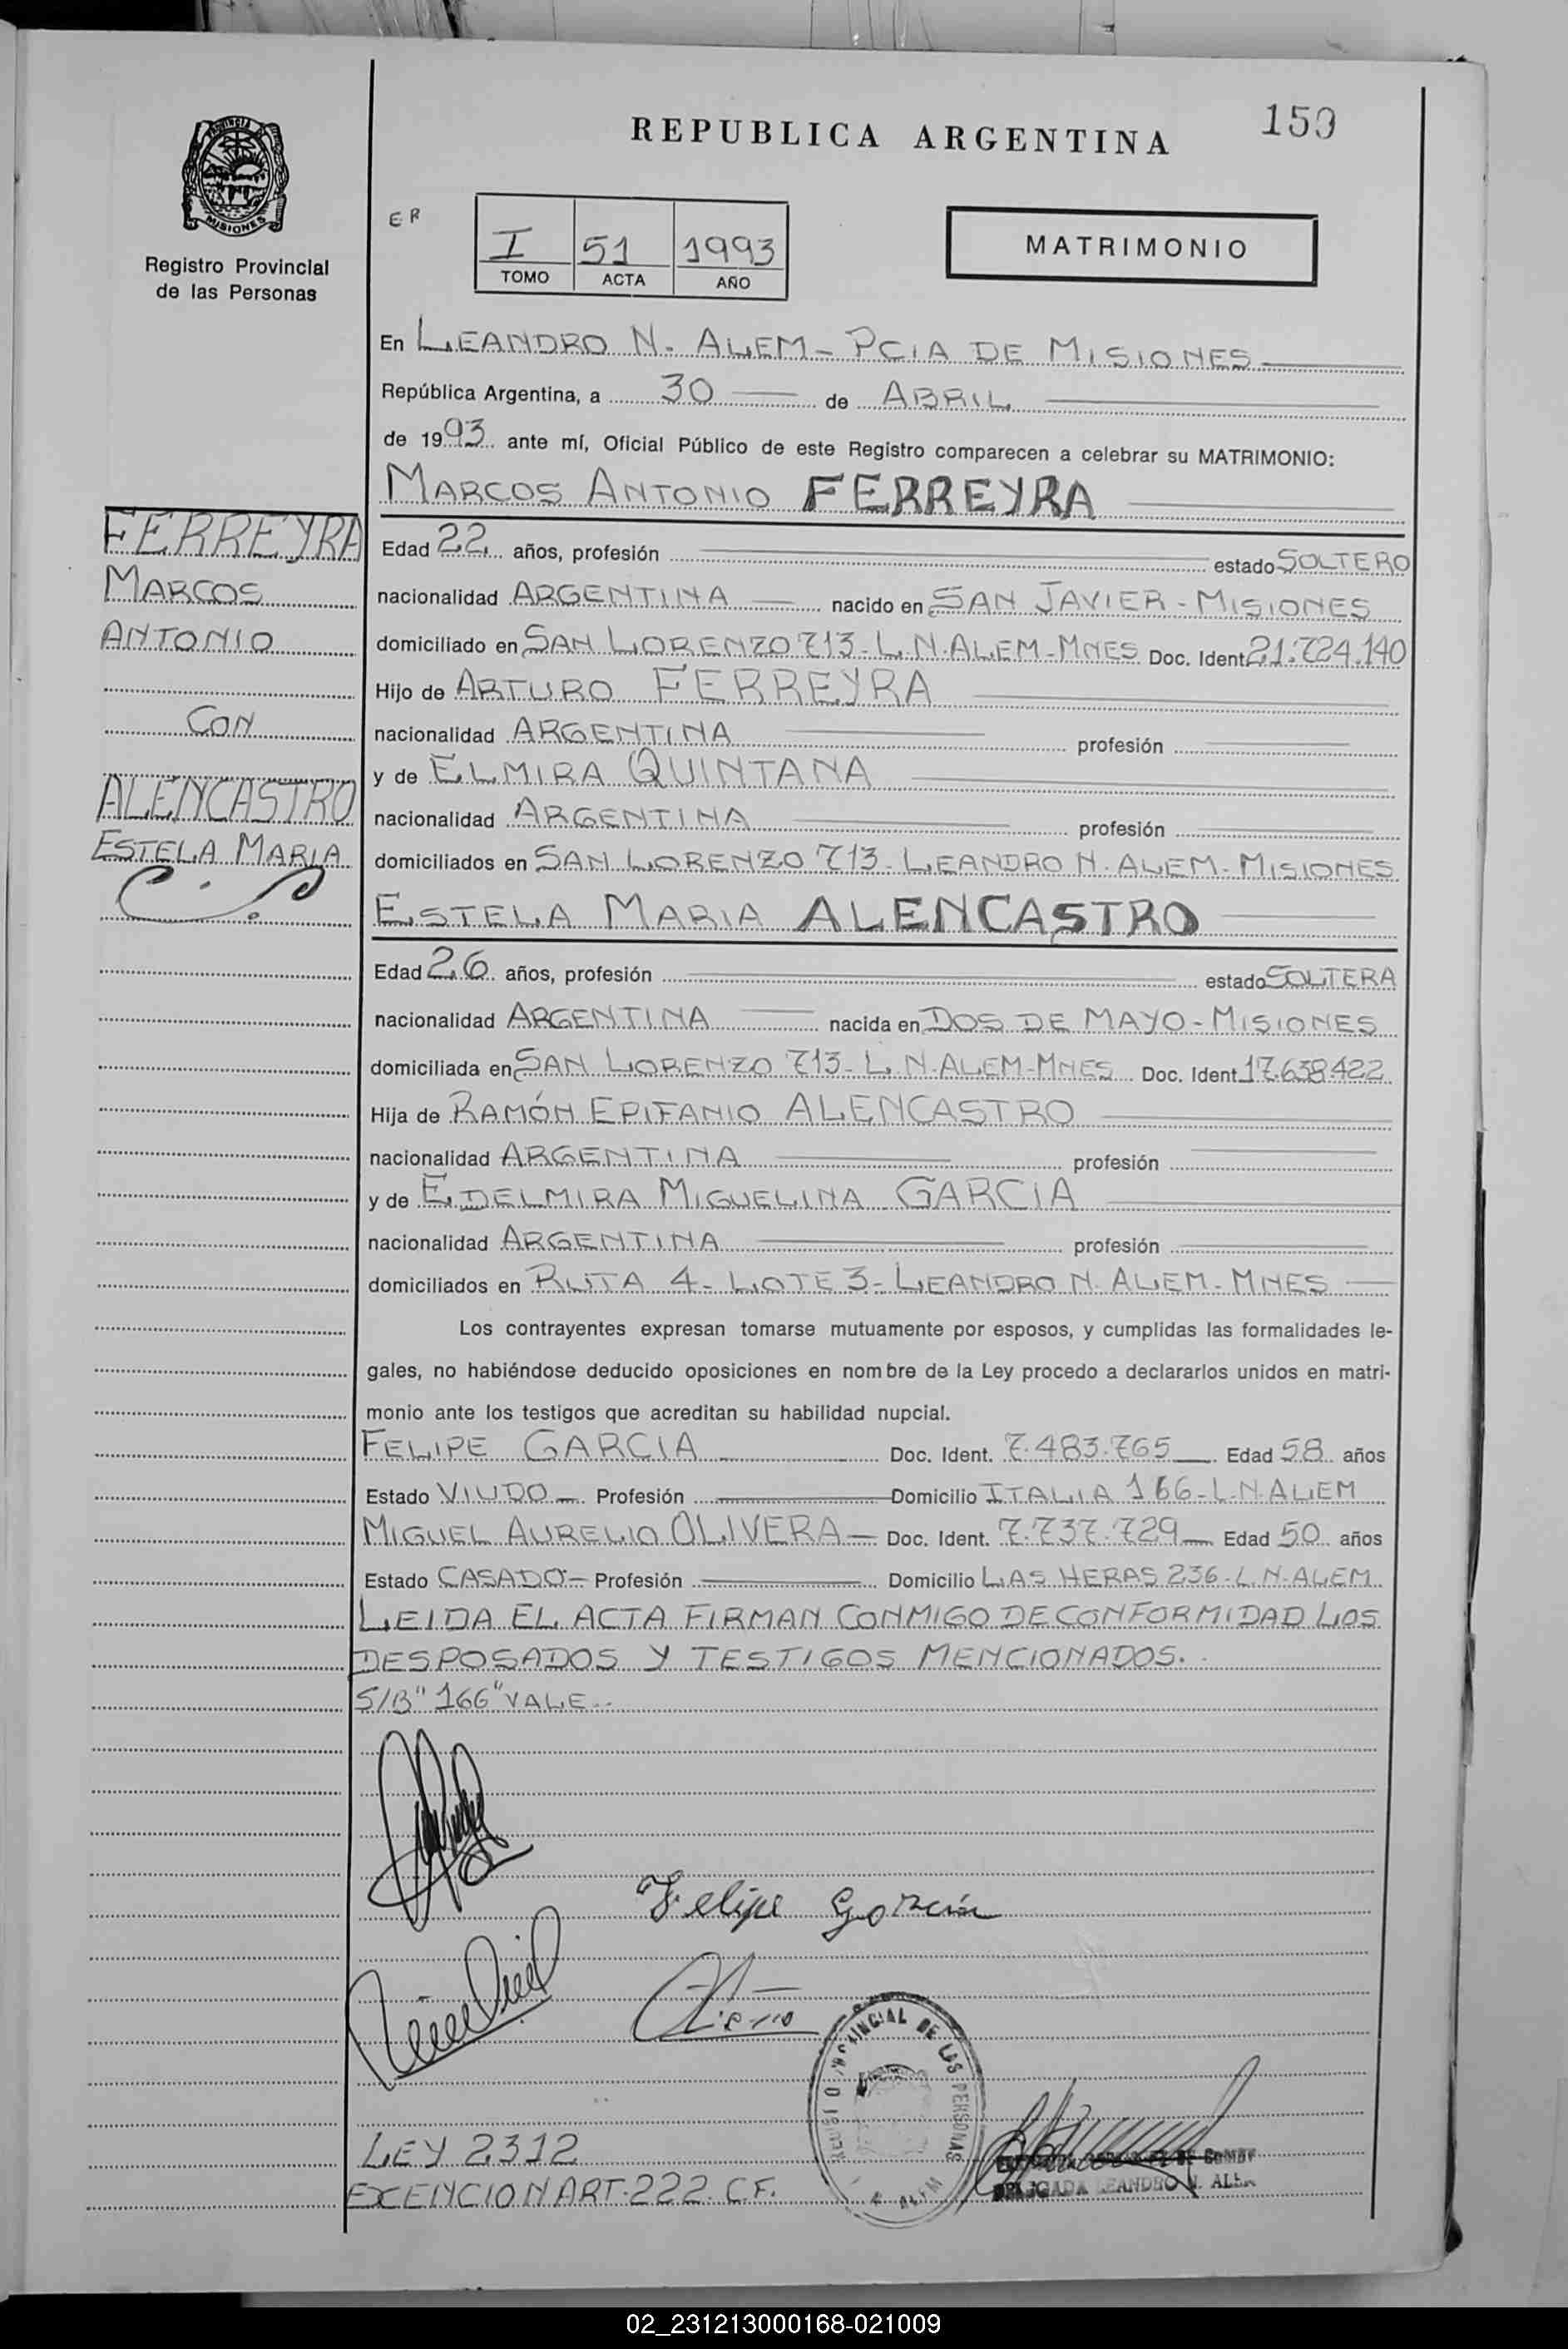 REPUBLICA ARGENTINA
159
PROVINCIA DE
MISIONES
Registro Provincial
de las Personas
ER
I 51 1993
TOMO ACTA AÑO
MATRIMONIO
En LEANDRO N. ALEM - PCIA DE MISIONES
República Argentina, a 30 de ABRIL
de 1993 ante mí, Oficial Público de este Registro comparecen a celebrar su MATRIMONIO:
MARCOS ANTONIO FERREYRA
FERREYRA
MARCOS
ANTONIO
CON
ALENCASTRO
ESTELA MARIA
Edad 22 años, profesión estado SOLTERO
nacionalidad ARGENTINA nacido en SAN JAVIER - MISIONES
domiciliado en SAN LORENZO 713 - L.N. ALEM - MNES Doc. Ident. 21.724.140
Hijo de ARTURO FERREYRA
nacionalidad ARGENTINA profesión
y de ELMIRA QUINTANA
nacionalidad ARGENTINA profesión
domiciliados en SAN LORENZO 713 - LEANDRO N. ALEM - MISIONES
ESTELA MARIA ALENCASTRO
Edad 26 años, profesión estado SOLTERA
nacionalidad ARGENTINA nacida en DOS DE MAYO - MISIONES
domiciliada en SAN LORENZO 713 - L.N. ALEM - MNES Doc. Ident. 17.638.422
Hija de RAMÓN EPIFANIO ALENCASTRO
nacionalidad ARGENTINA profesión
y de EDELMIRA MIGUELINA GARCIA
nacionalidad ARGENTINA profesión
domiciliados en RUTA 4 - LOTE 3 - LEANDRO N. ALEM - MNES
Los contrayentes expresan tomarse mutuamente por esposos, y cumplidas las formalidades le-
gales, no habiéndose deducido oposiciones en nombre de la Ley procedo a declararlos unidos en matri-
monio ante los testigos que acreditan su habilidad nupcial.
FELIPE GARCIA Doc. Ident. 7.483.765 Edad 58 años
Estado VIUDO Profesión Domicilio ITALIA 166 - L.N. ALEM
MIGUEL AURELIO OLIVERA Doc. Ident. 7.737.729 Edad 50 años
Estado CASADO Profesión Domicilio LAS HERAS 236 - L.N. ALEM
LEIDA EL ACTA FIRMAN CONMIGO DE CONFORMIDAD LOS
DESPOSADOS Y TESTIGOS MENCIONADOS.
S/B "166" VALE.
Felipe Garcia
PROVINCIAL DE LAS PERSONAS
ALEM
DELEGADA LEANDRO N. ALEM
LEY 2312
EXENCION ART. 222 C.F.
02_231213000168-021009